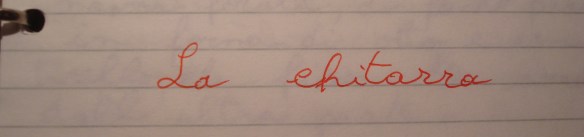 La chitarra